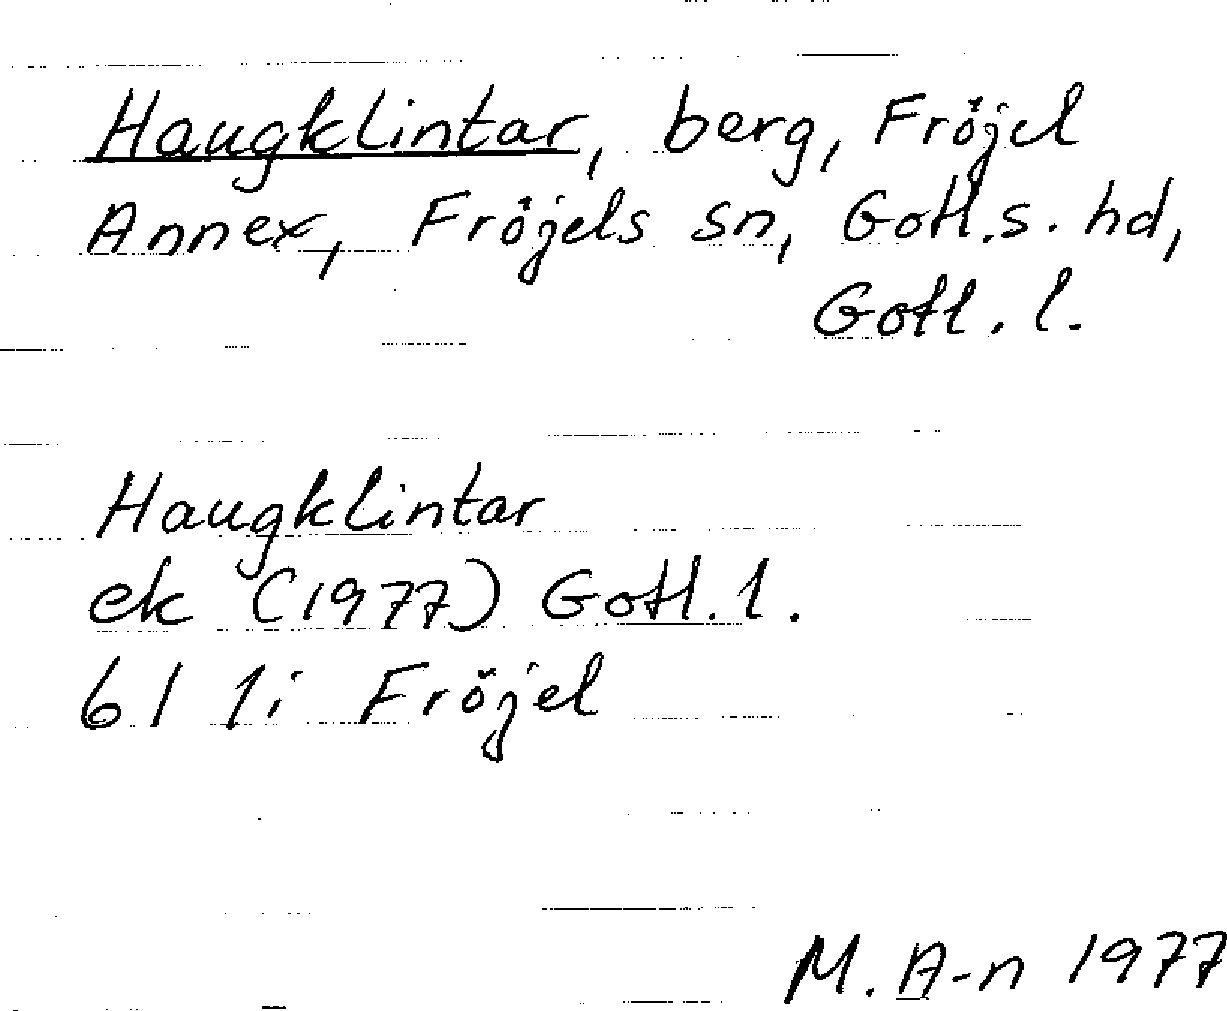 Haugklintar, berg, Fröjel
Annex, Fröjels sn, Gotl.s. hd,
Gotl. l.
Haugklintar
ek (1977) Gotl. l.
6I 1i Fröjel
M. A-n 1977